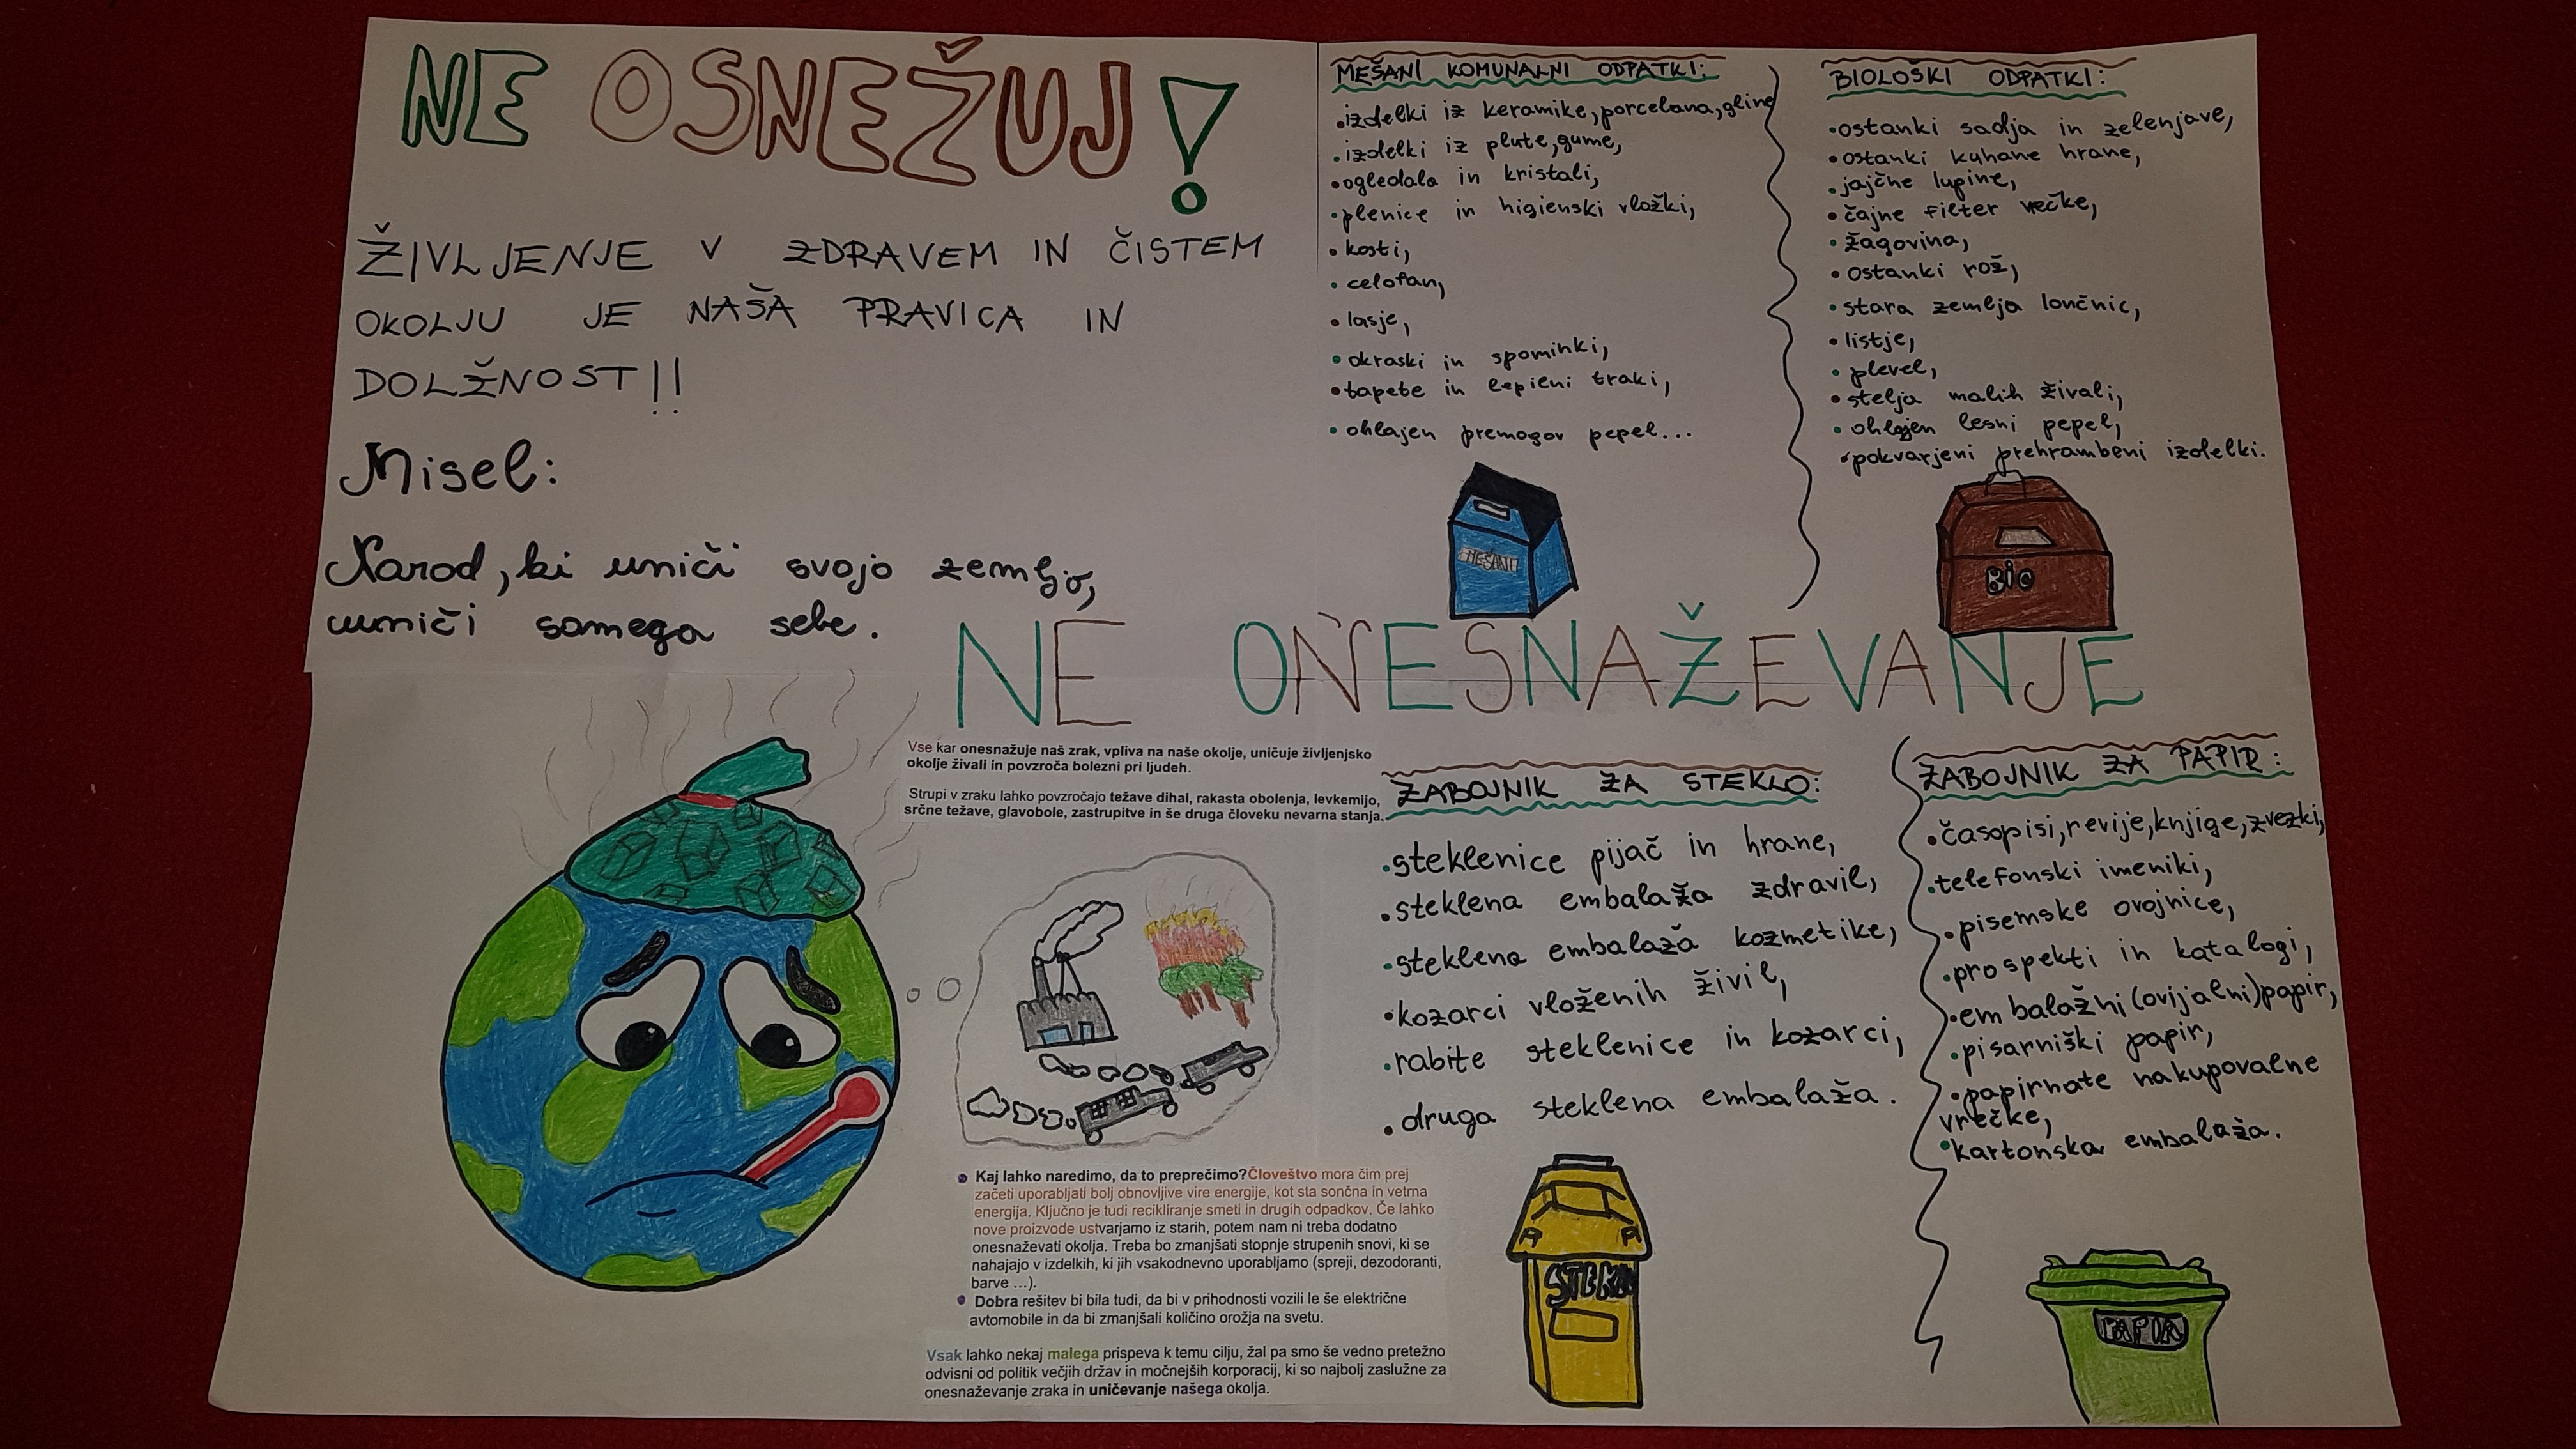 NE OSNEŽUJ!
ŽIVLJENJE V ZDRAVEM IN ČISTEM
OKOLJU JE NAŠA PRAVICA IN
DOLŽNOST!!
Misel:
Narod, ki uniči svojo zemljo,
uniči samega sebe.
MEŠANI KOMUNALNI ODPATKI:
•izdelki iz keramike, porcelana, gline
•izdelki iz plute, gume,
•ogledala in kristali,
•plenice in higienski vložki,
•kosti,
•celofan,
•lasje,
•okraski in spominki,
•tapete in lepilni traki,
•ohlajen premogov pepel...
MEŠANI
BIOLOŠKI ODPATKI:
•ostanki sadja in zelenjave,
•ostanki kuhane hrane,
•jajčne lupine,
•čajne filter večke,
•žagovina,
•ostanki rož,
•stara zemlja lončnic,
•listje,
•plevel,
•stelja malih živali,
•ohlajen lesni pepel,
•pokvarjeni prehrambeni izdelki.
BIO
NE ONESNAŽEVANJE
Vse kar onesnažuje naš zrak, vpliva na naše okolje, uničuje življenjsko
okolje živali in povzroča bolezni pri ljudeh.
Strupi v zraku lahko povzročajo težave dihal, rakasta obolenja, levkemijo,
srčne težave, glavobole, zastrupitve in še druga človeku nevarna stanja.
• Kaj lahko naredimo, da to preprečimo?Človeštvo mora čim prej
začeti uporabljati bolj obnovljive vire energije, kot sta sončna in vetrna
energija. Ključno je tudi recikliranje smeti in drugih odpadkov. Če lahko
nove proizvode ustvarjamo iz starih, potem nam ni treba dodatno
onesnaževati okolja. Treba bo zmanjšati stopnje strupenih snovi, ki se
nahajajo v izdelkih, ki jih vsakodnevno uporabljamo (spreji, dezodoranti,
barve ...).
• Dobra rešitev bi bila tudi, da bi v prihodnosti vozili le še električne
avtomobile in da bi zmanjšali količino orožja na svetu.
Vsak lahko nekaj malega prispeva k temu cilju, žal pa smo še vedno pretežno
odvisni od politik večjih držav in močnejših korporacij, ki so najbolj zaslužne za
onesnaževanje zraka in uničevanje našega okolja.
ZABOJNIK ZA STEKLO:
•steklenice pijač in hrane,
•steklena embalaža zdravil,
•steklena embalaža kozmetike,
•kozarci vloženih živil,
•rabite steklenice in kozarci,
•druga steklena embalaža.
STEKLO
ZABOJNIK ZA PAPIR:
•časopisi, revije, knjige, zvezki,
•telefonski imeniki,
•pisemske ovojnice,
•prospekti in katalogi,
•embalažni (ovijalni) papir,
•pisarniški papir,
•papirnate nakupovalne
vrečke,
•kartonska embalaža.
PAPIR